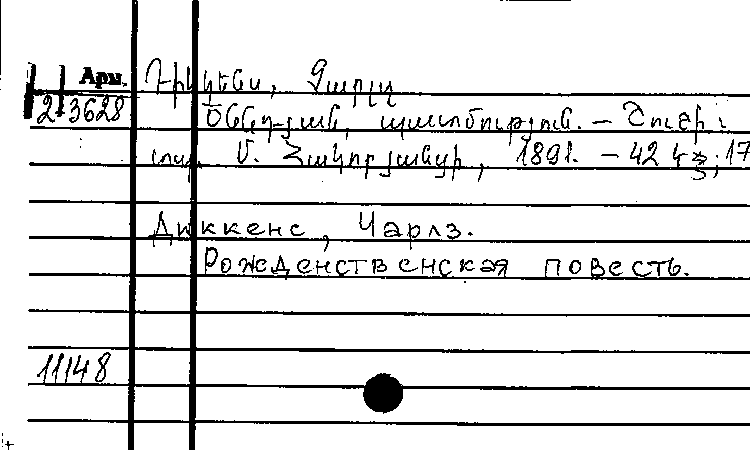 Арм.
Դիկկենս, Չարլզ
2-3628
Ծննդյան պատմություն. – Շուշի:
տպ. Մ. Հակոբյանցի, 1891. – 42 էջ; 17
Диккенс, Чарлз.
Рождественская повесть.
11148